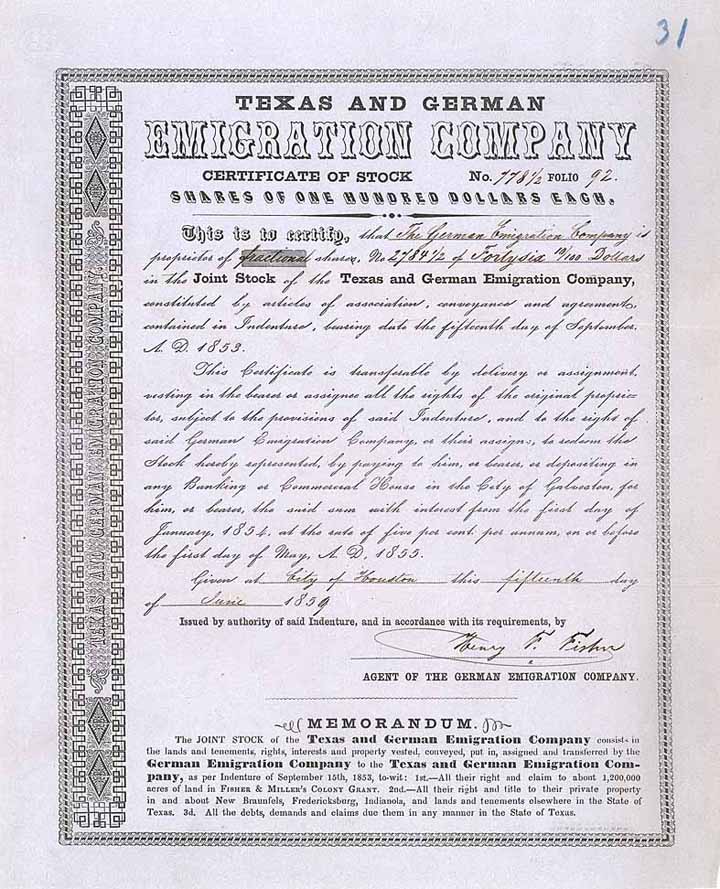 31
TEXAS AND GERMAN
EMIGRATION COMPANY
CERTIFICATE OF STOCK No. 778 1/2 FOLIO 92.
SHARES OF ONE HUNDRED DOLLARS EACH.
This is to certify, that The German Emigration Company is
proprietor of fractional shares, No 2784 1/2 of Fortysix /100 Dollars
in the Joint Stock of the Texas and German Emigration Company,
constituted by articles of association, conveyance and agreement,
contained in Indenture, bearing date the fifteenth day of September,
A. D. 1853.
This Certificate is transferable by delivery or assignment,
vesting in the bearer or assignee all the rights of the original proprie-
tor, subject to the provisions of said Indenture, and to the right of
said German Emigration Company, or their assigns, to redeem the
Stock hereby represented, by paying to him, or bearer, or depositing in
any Banking or Commercial House in the City of Galveston, for
him, or bearer, the said sum with interest from the first day of
January, 1854, at the rate of five per cent. per annum, on or before
the first day of May, A. D. 1855.
Given at City of Houston this fifteenth day
of June 1859
Issued by authority of said Indenture, and in accordance with its requirements, by
Henry F. Fisher
AGENT OF THE GERMAN EMIGRATION COMPANY.
MEMORANDUM.
The JOINT STOCK of the Texas and German Emigration Company consists in
the lands and tenements, rights, interests and property vested, conveyed, put in, assigned and transferred by the
German Emigration Company to the Texas and German Emigration Com-
pany, as per Indenture of September 15th, 1853, to-wit: 1st.—All their right and claim to about 1,200,000
acres of land in FISHER & MILLER'S COLONY GRANT. 2nd.—All their right and title to their private property
in and about New Braunfels, Fredericksburg, Indianola, and lands and tenements elsewhere in the State of
Texas. 3d. All the debts, demands and claims due them in any manner in the State of Texas.
TEXAS AND GERMAN EMIGRATION COMPANY.